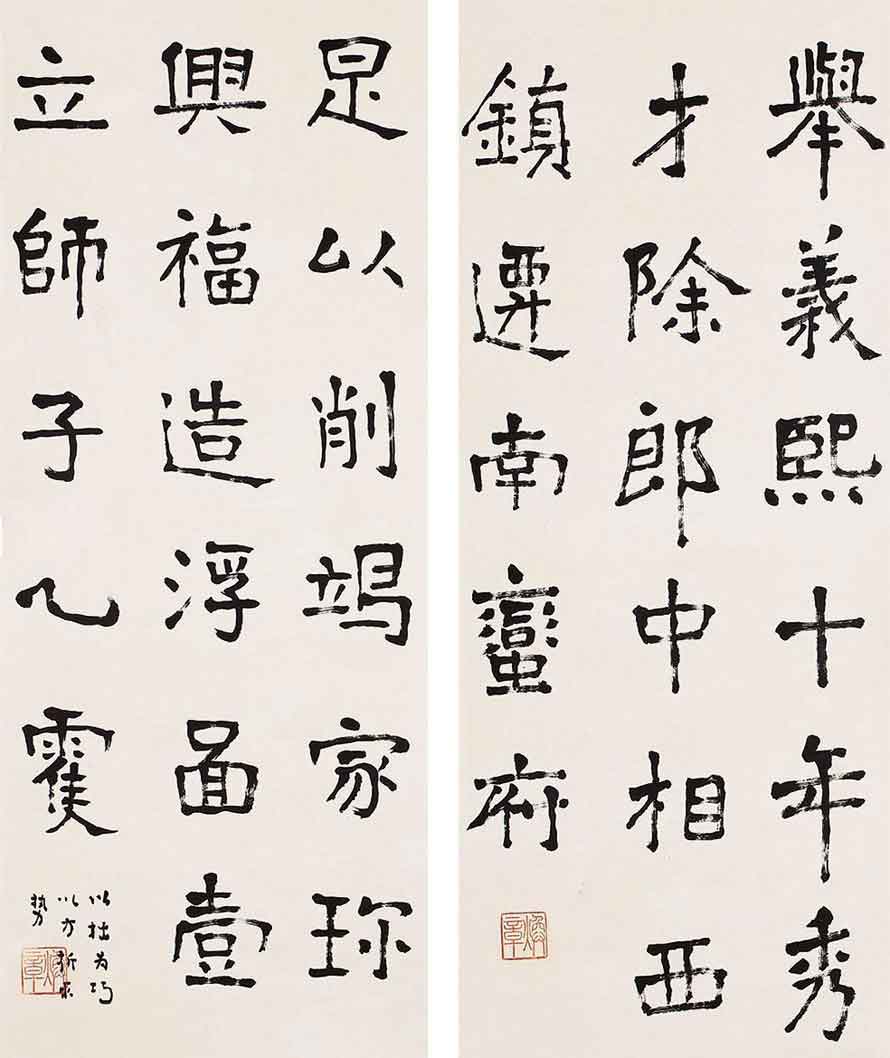 舉義熙十年秀
才除郎中相西
鎮遷南蠻府
是以削竭家珍
興福造浮啚壹
立師子
以拙为巧
以方折求
势